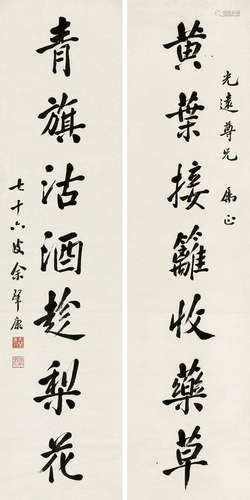 光遠尊兄 屬正
黃葉接籬收藥草
青旗沽酒趁梨花
七十六叟余肇康